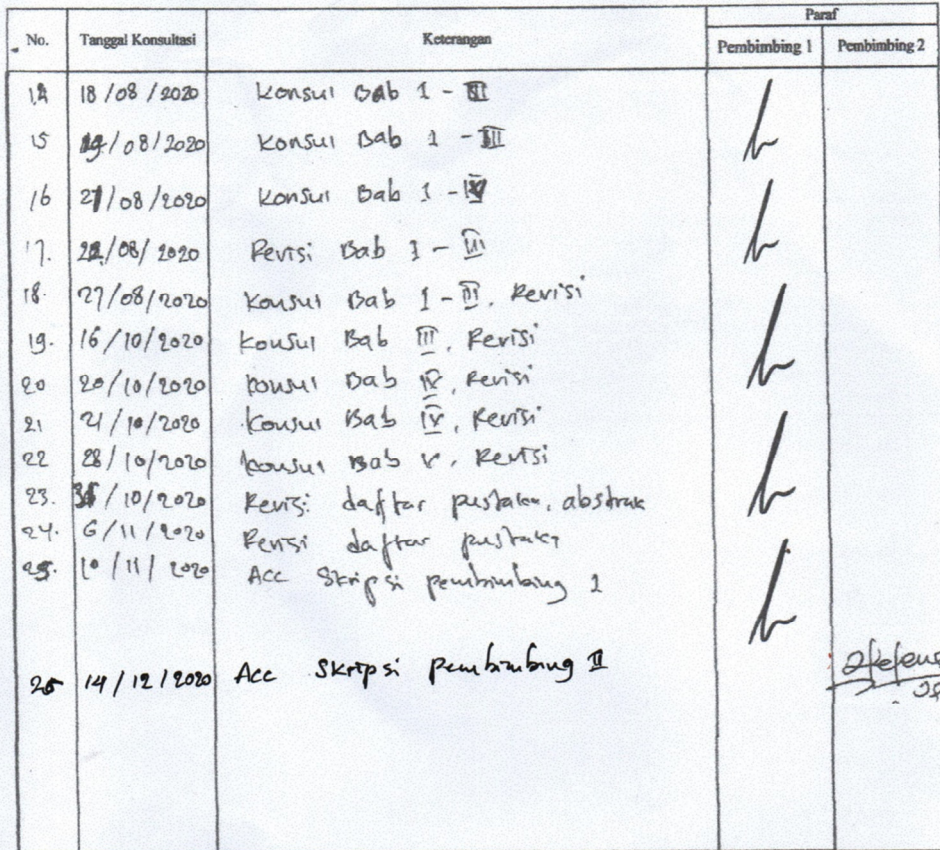 No. Tanggal Konsultasi Keterangan Paraf
Pembimbing 1 Pembimbing 2
14 18/08/2020 Konsul Bab 1 - III
15 19/08/2020 Konsul Bab 1 - III
16 21/08/2020 Konsul Bab 1 -
17. 22/08/2020 Revisi Bab 1 - III
18. 27/08/2020 Konsul Bab 1 - III, Revisi
19. 16/10/2020 Konsul Bab III, Revisi
20 20/10/2020 Konsul Bab IV, Revisi
21 21/10/2020 Konsul Bab IV, Revisi
22 28/10/2020 Konsul Bab V, Revisi
23. /10/2020 Revisi daftar pustaka, abstrak
24. 6/11/2020 Revisi daftar pustaka
25. 10/11/2020 Acc Skripsi pembimbing 1
26 14/12/2020 Acc Skripsi pembimbing II